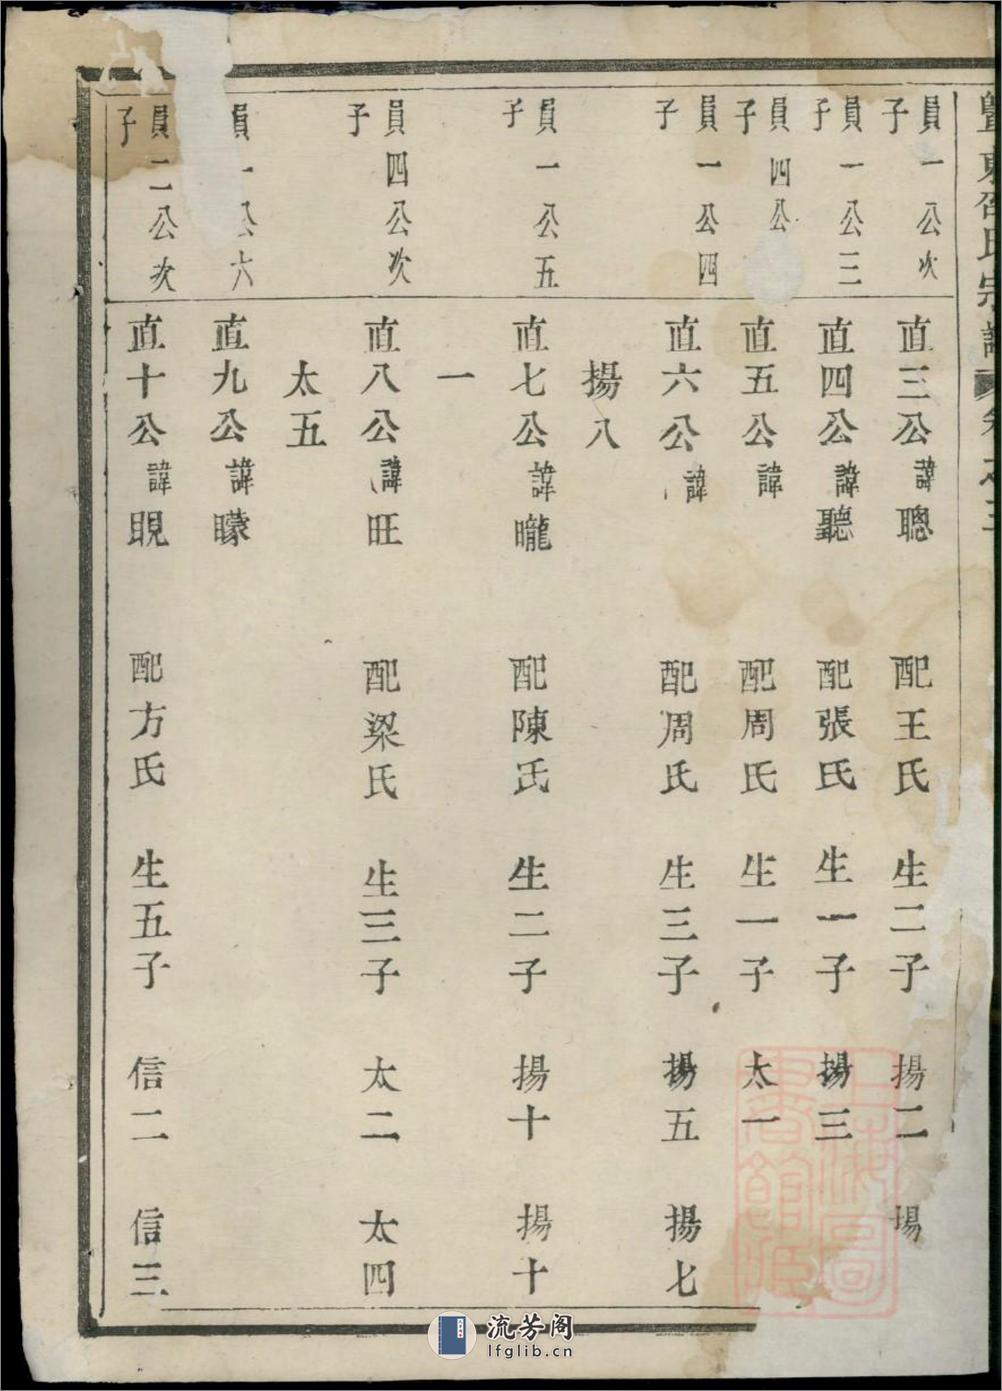 東邵氏宗譜 卷之三
員一公次子
直三公諱聰 配王氏 生二子 揚二 揚
員一公三子
直四公諱聽 配張氏 生一子 揚三
員四公子
直五公諱 配周氏 生一子 太一
員一公四子
直六公諱 配周氏 生三子 揚五 揚七
揚八
員一公五子
直七公諱曨 配陳氏 生二子 揚十 揚十
一
員四公次子
直八公諱旺 配梁氏 生三子 太二 太四
太五
員一公六
直九公諱矇
員二公次子
直十公諱睍 配方氏 生五子 信二 信三
流芳阁
lfglib.cn